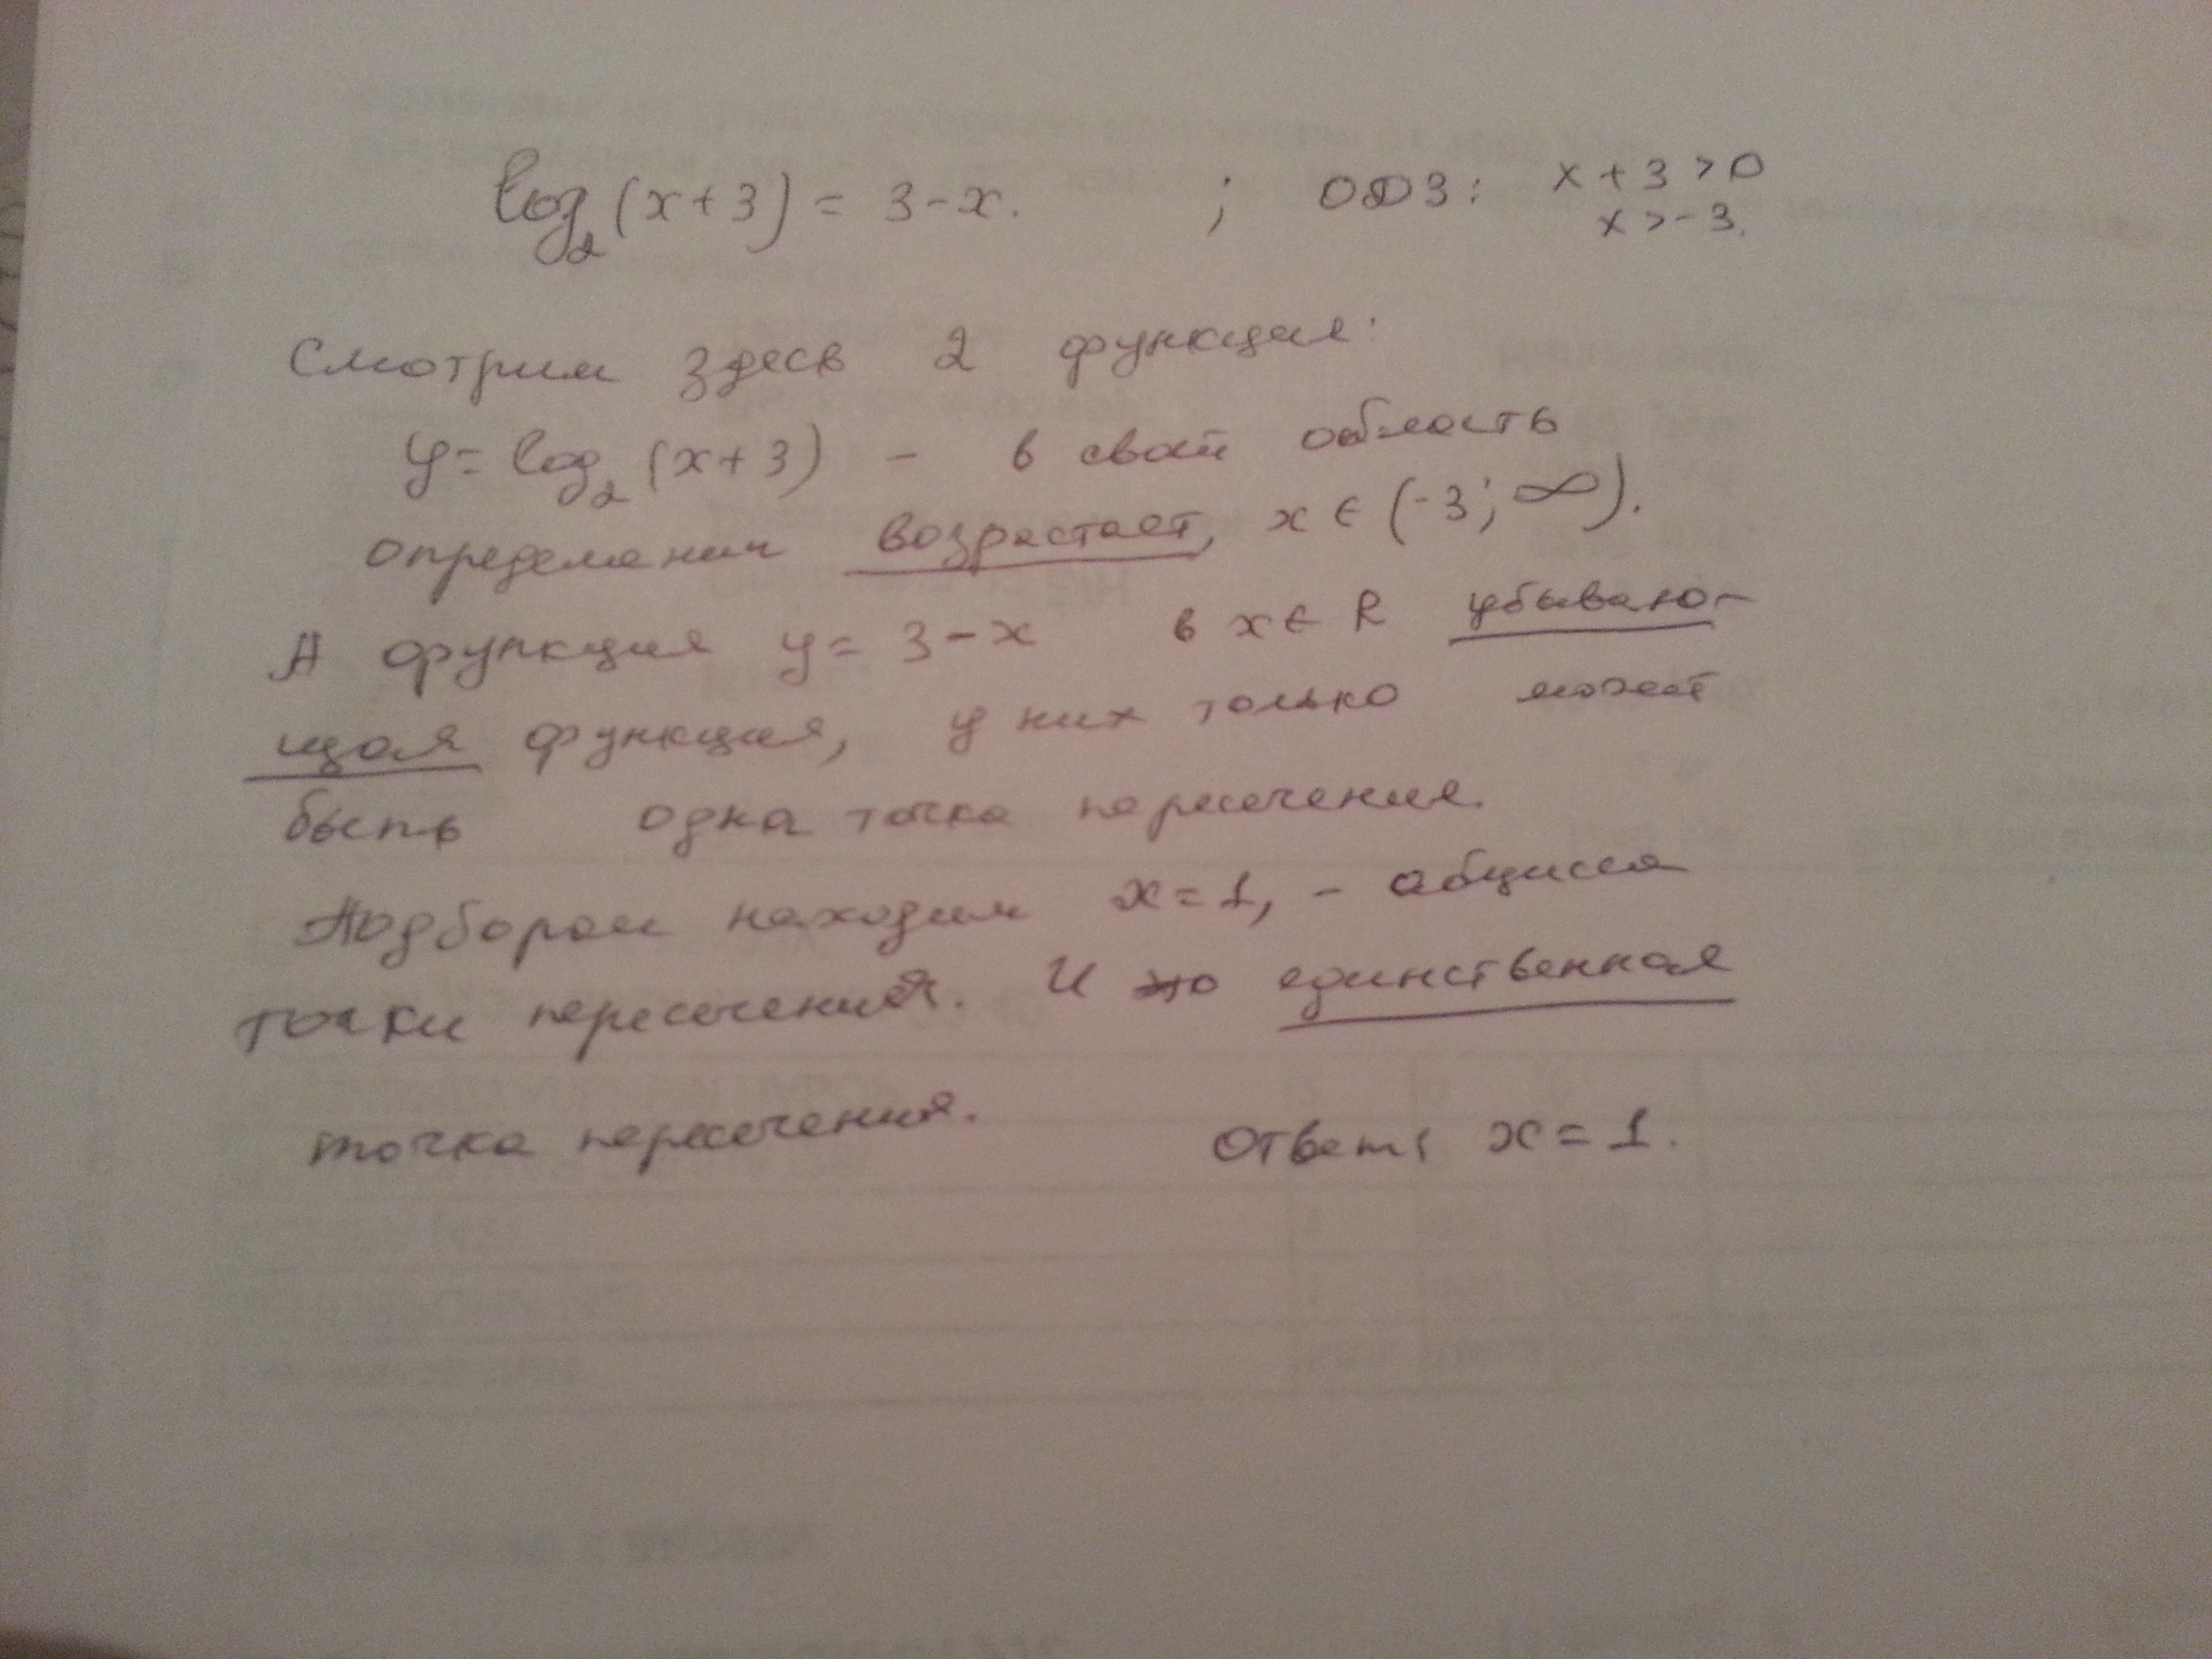 log₂(x+3) = 3-x. ; ОДЗ: x+3>0
x>-3.
Смотрим здесь 2 функция:
y = log₂(x+3) - в свой область
определения возрастает, x ∈ (-3; ∞).
А функция y = 3-x в x ∈ R убываю-
щая функция, у них только может
быть одна точка пересечения.
Подбором находим x=1, - абцисса
точки пересечения. И это единственная
точка пересечения. Ответ: x = 1.